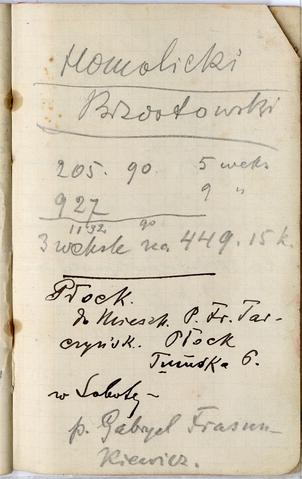 Homolicki
Brzostowski
205. 90. 5 weks
927 9 "
11.32. 90
3 weksle na 449.15 k.
Płock.
do Mieszk. P. Fr. Tar-
czyńsk. Płock
Tumska 6.
w Sobotę
p. Gabryel Frasun-
kiewicz.